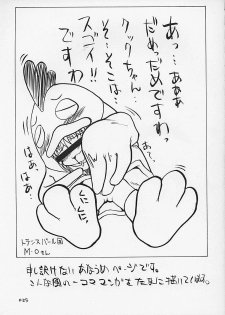 あっ…あぁぁ
だめっだめですわっ
クックちゃん
そ…そこは…
スゴイ!!
ですわ
はぁ、はぁ…
はぁはぁ…
くにくに。
トランスバール国
M・Oさん
申し訳けないあなうめページです。
こんな風の一コママンガもたまに描いてくるす。